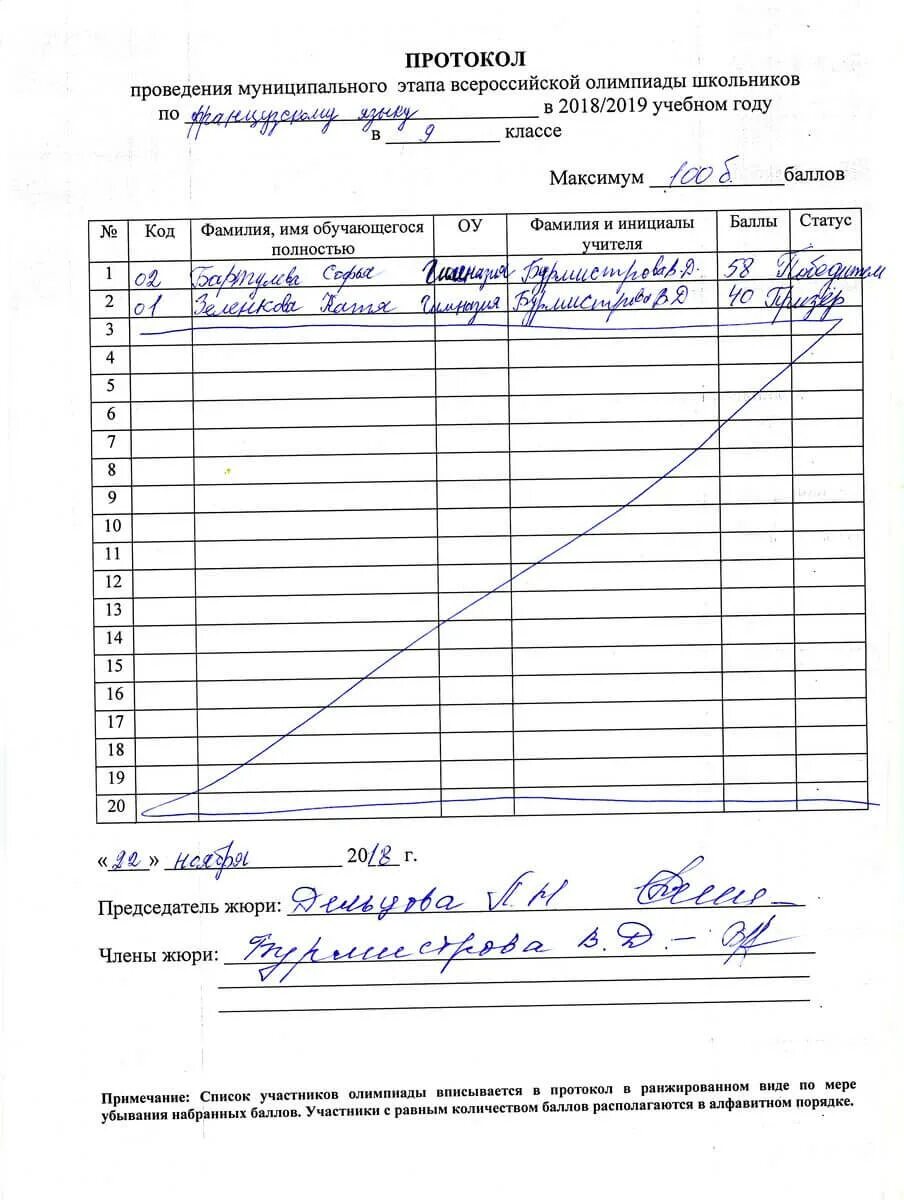 ПРОТОКОЛ
проведения муниципального этапа всероссийской олимпиады школьников
по французскому языку в 2018/2019 учебном году
в 9 классе
Максимум 100 б. баллов
№ Код Фамилия, имя обучающегося полностью ОУ Фамилия и инициалы учителя Баллы Статус
1 02 Софья Гимназия Бурмистрова В.Д. 58 Победитель
2 01 Зеленкова Катя Гимназия Бурмистрова В.Д 40 Призёр
3
4
5
6
7
8
9
10
11
12
13
14
15
16
17
18
19
20
«22» ноября 2018 г.
Председатель жюри: Дельцова Л.Н
Члены жюри: Бурмистрова В.Д.
Примечание: Список участников олимпиады вписывается в протокол в ранжированном виде по мере
убывания набранных баллов. Участники с равным количеством баллов располагаются в алфавитном порядке.